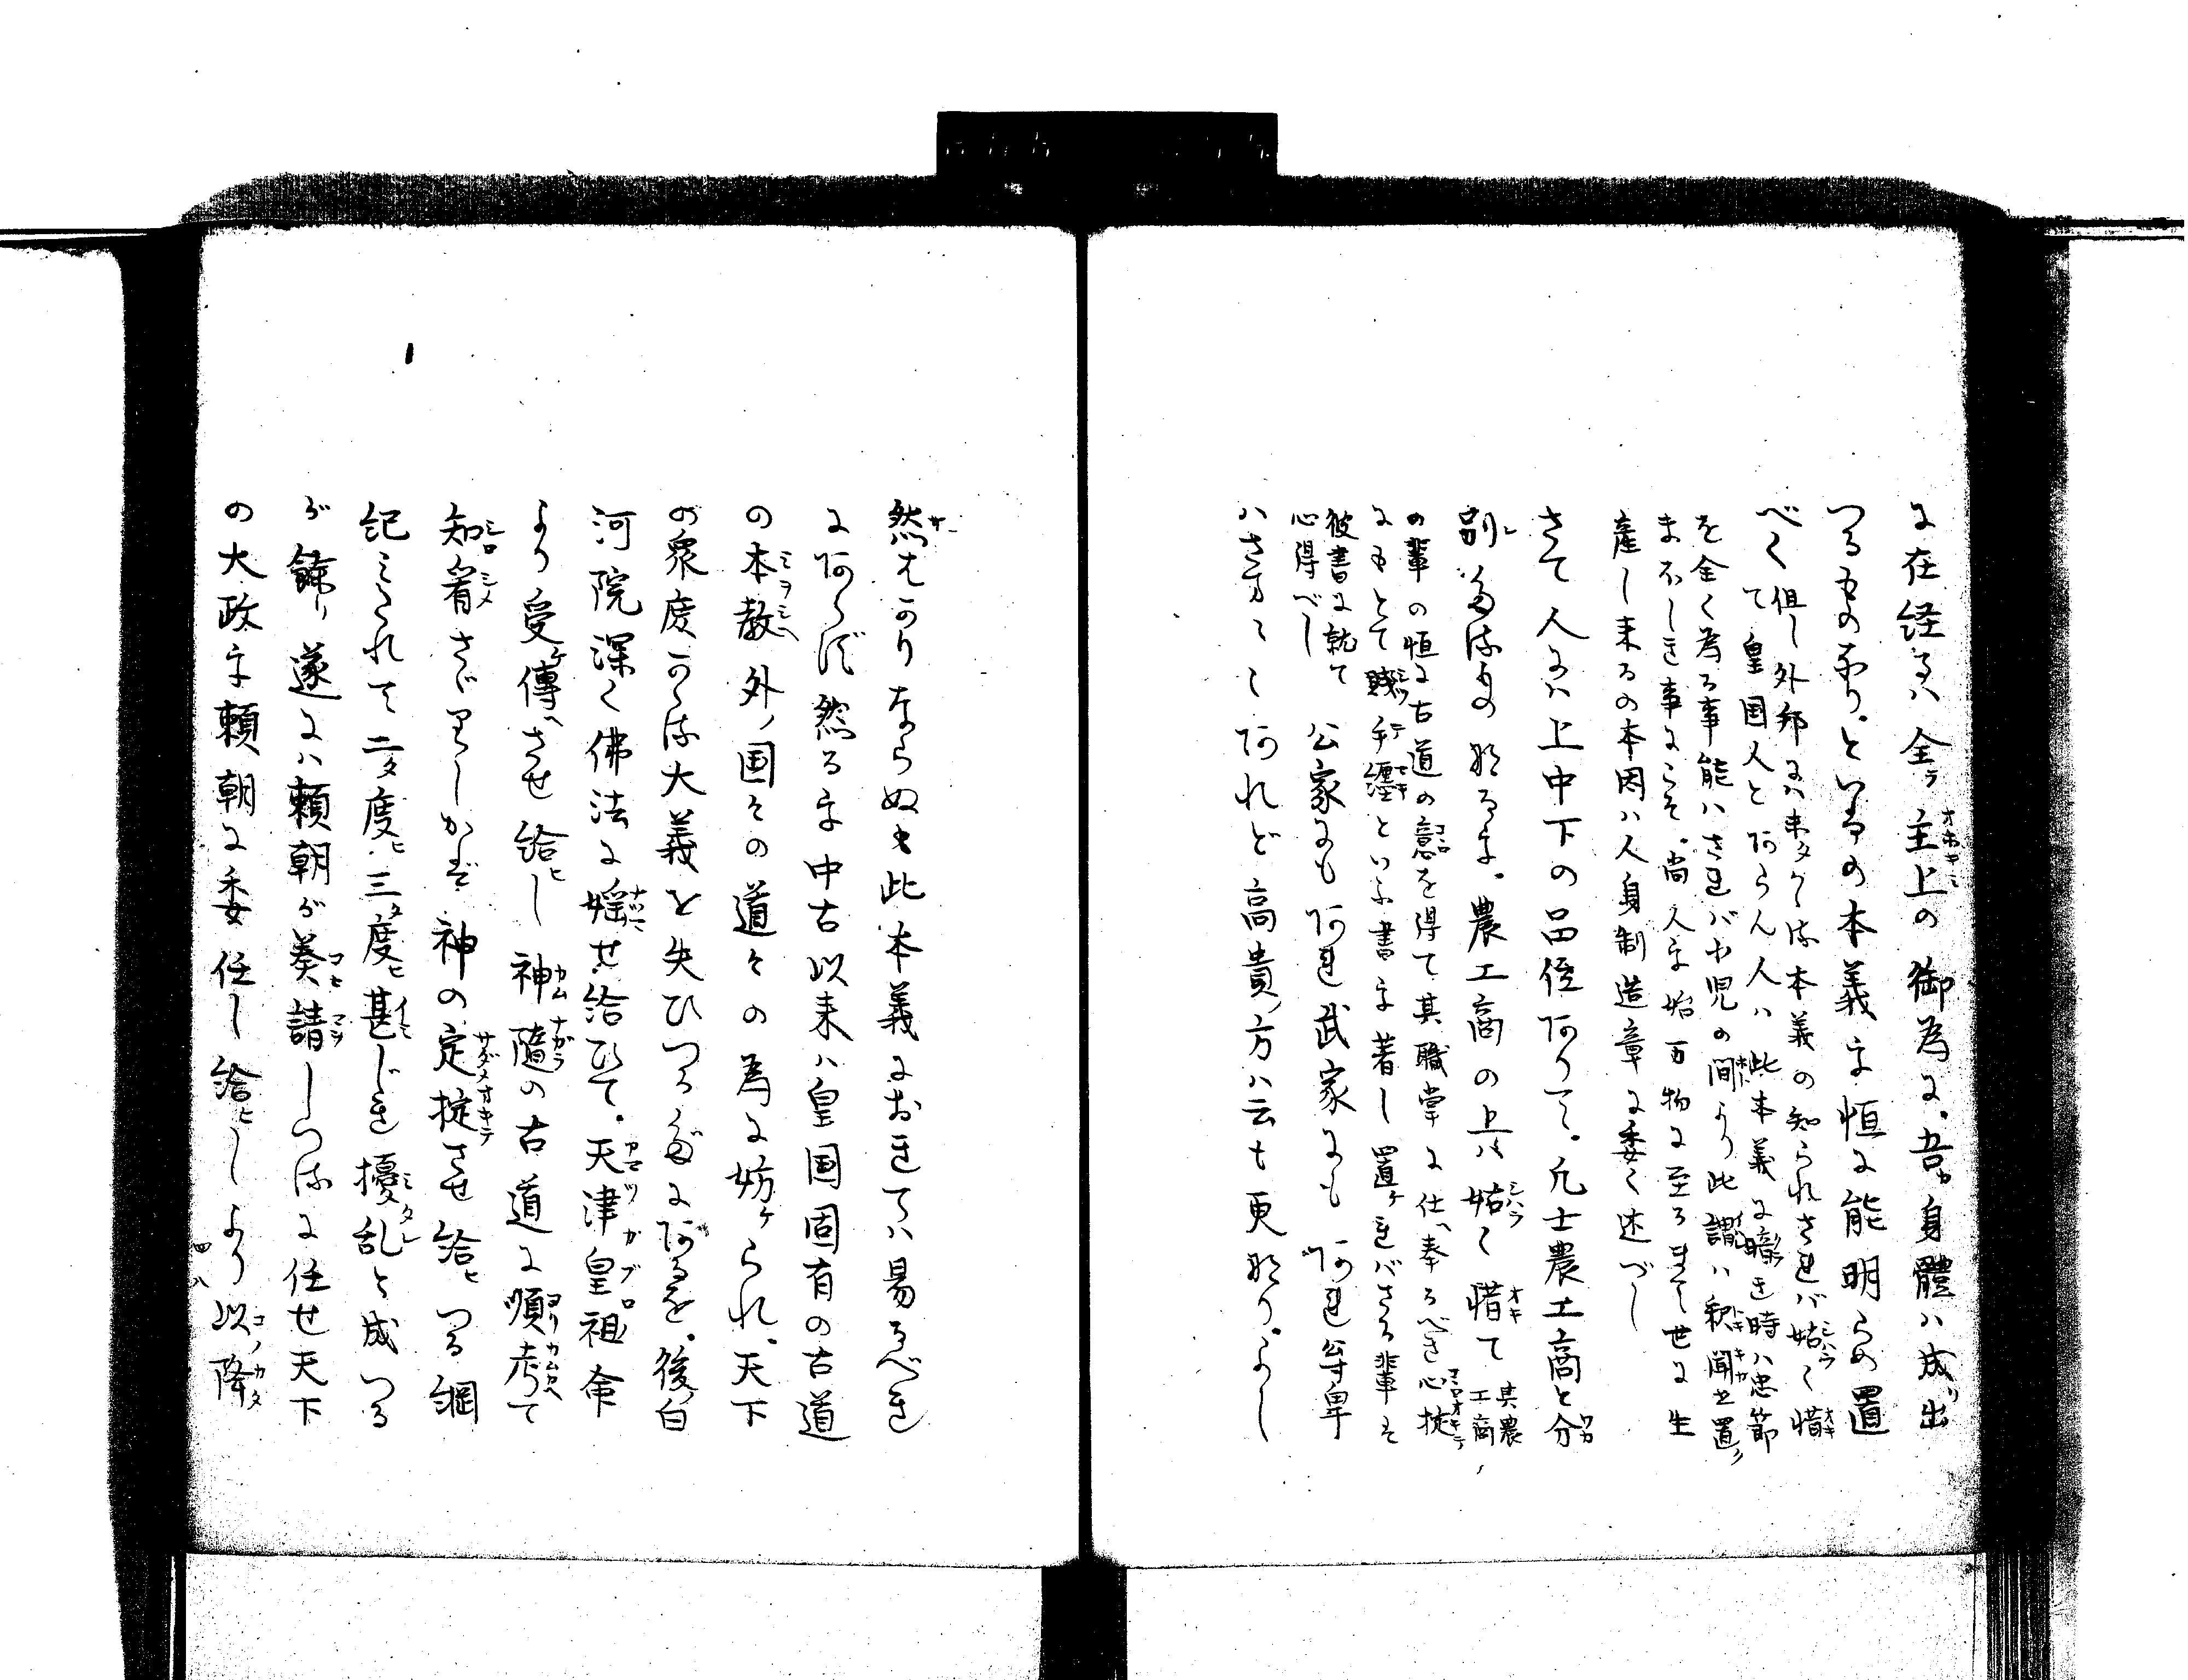 に在経るハ全ラ主上の御為に。吾カ身體ハ成リ出
つる物のあり。といふの本義を恒に能明らめ置
べく但し外邦にハ未タかゝる本義の知られされバ姑く惜
て皇国人とあらん人ハ此本義に瞭き時ハ忠節
を全く為る事能ハされバ小児の間より此謂ハ釈聞せ置ノ
まホしき事にこそ。尚人を始万物に至るまて世に生
産し来るの本因ハ人身制造章に委く述づし
さて人にハ上中下の品位ありて。凡士農工商と分
別るゝ物なるを。農工商の上ハ姑く惜て其農工商ノ
の輩の恒に古道の意を得て其職掌に仕へ奉るべき心掟
にもとて賤手纏といふ書を著し置ケれバさる輩そ
彼書に就て心得べし公家にもあれ武家にもあれ尊卑
ハさま〱あれど高貴ノ方ハ云も更なり。よし
然さかりならぬも此本義におきてハ易るべき
にあらず然るを中古以来ハ皇国固有の古道
の本教外ノ国その道々の為に妨ケられ。天下
の衆庶かゝる大義を失ひつるがにあるを。後ノ白
河院深く佛法に婬せ給ひて。天津皇祖命
より受ケ傳へさせ給ヒし神随の古道に順考て
知看さゞりしかバ神の定掟させ給ヒつる綱
紀みたれて二タ度ヒ三タ度ヒ甚じき擾乱と成つる
が飾り遂にハ頼朝が奏請しつるに任せ天下
の大政を頼朝に委任し給ヒしより以降
四八